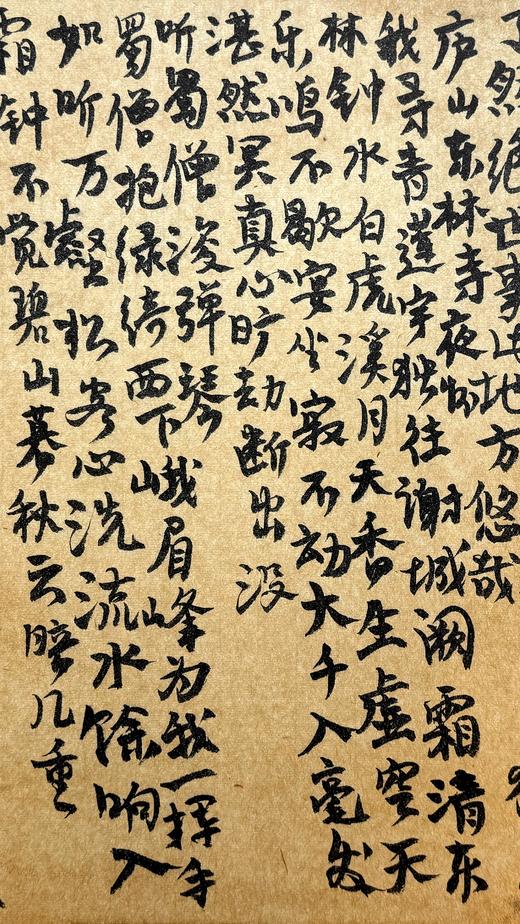 了然绝世事此地方悠哉
庐山东林寺夜怀
我寻青莲宇独往谢城阙霜清东
林钟水白虎溪月天香生虚空天
乐鸣不歇宴坐寂不动大千入毫发
湛然冥真心旷劫断出没
听蜀僧浚弹琴
蜀僧抱绿绮西下峨眉峰为我一挥手
如听万壑松客心洗流水馀响入
霜钟不觉碧山暮秋云暗几重